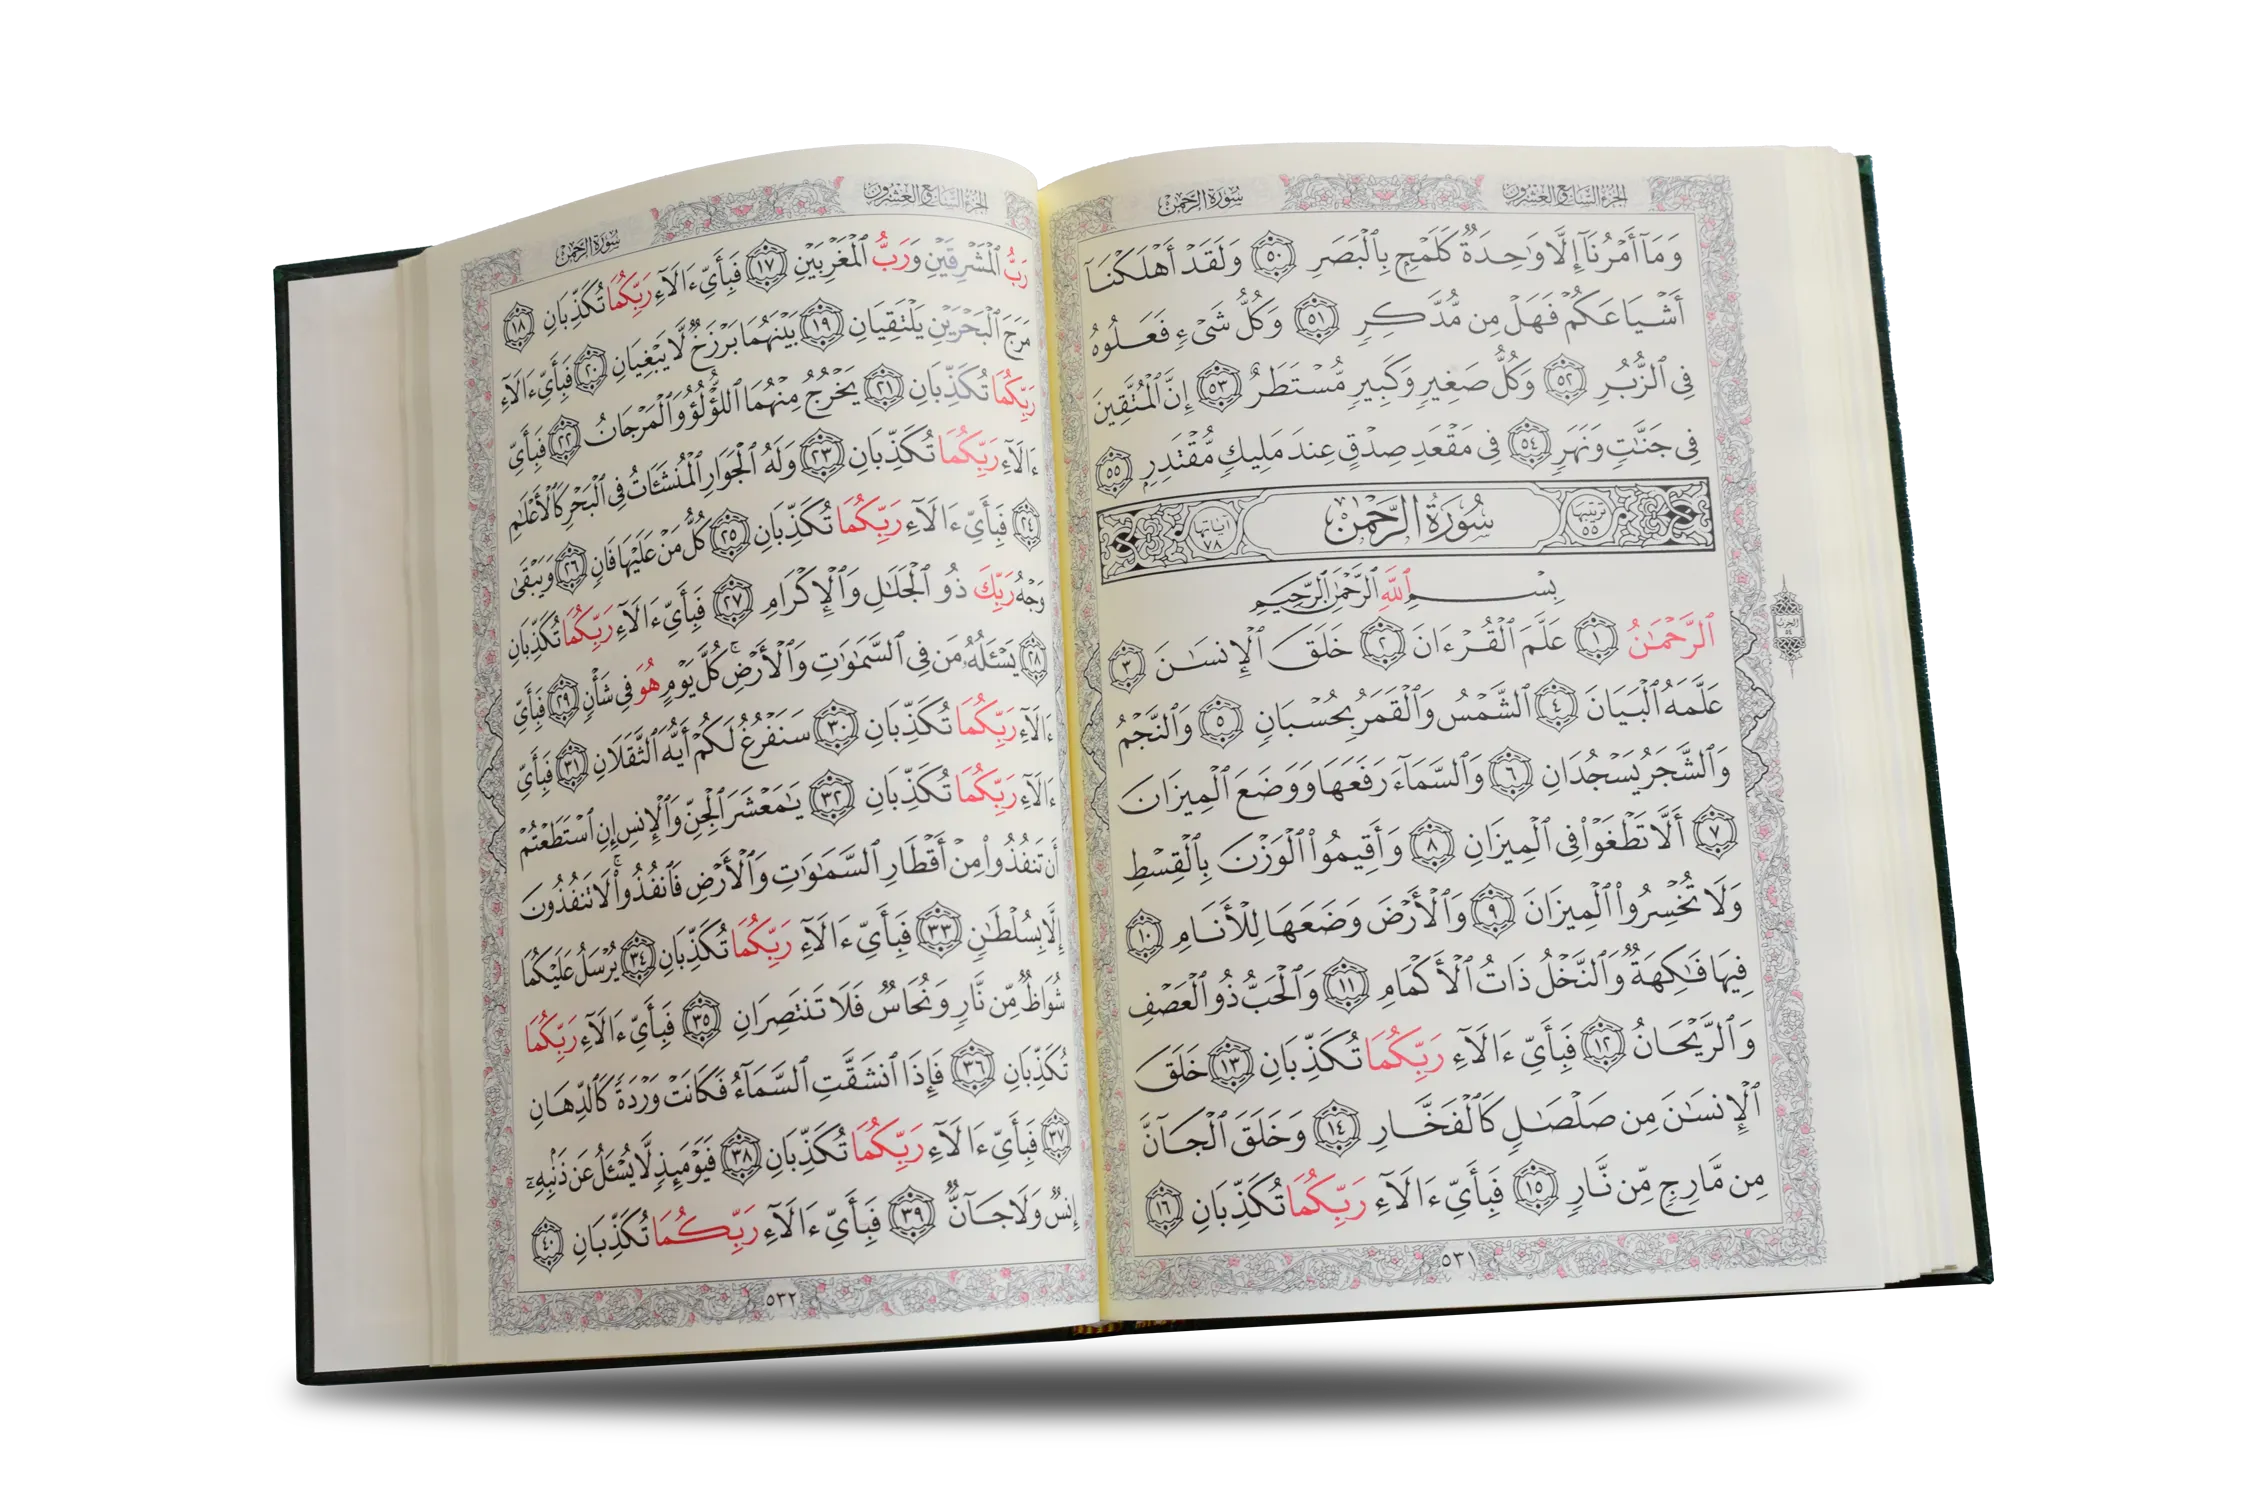 الجزء السابع والعشرون
سورة الرحمن
وَمَآ أَمْرُنَآ إِلَّا وَٰحِدَةٌ كَلَمْحٍۭ بِٱلْبَصَرِ ٥٠ وَلَقَدْ أَهْلَكْنَآ
أَشْيَاعَكُمْ فَهَلْ مِن مُّدَّكِرٍ ٥١ وَكُلُّ شَىْءٍ فَعَلُوهُ
فِى ٱلزُّبُرِ ٥٢ وَكُلُّ صَغِيرٍ وَكَبِيرٍ مُّسْتَطَرٌ ٥٣ إِنَّ ٱلْمُتَّقِينَ
فِى جَنَّٰتٍ وَنَهَرٍ ٥٤ فِى مَقْعَدِ صِدْقٍ عِندَ مَلِيكٍ مُّقْتَدِرٍۭ ٥٥
ترتيبها ٥٥ سُورَةُ الرَّحْمٰن آياتها ٧٨
بِسْمِ ٱللَّهِ ٱلرَّحْمَٰنِ ٱلرَّحِيمِ
ٱلرَّحْمَٰنُ ١ عَلَّمَ ٱلْقُرْءَانَ ٢ خَلَقَ ٱلْإِنسَٰنَ ٣
عَلَّمَهُ ٱلْبَيَانَ ٤ ٱلشَّمْسُ وَٱلْقَمَرُ بِحُسْبَانٍ ٥ وَٱلنَّجْمُ
وَٱلشَّجَرُ يَسْجُدَانِ ٦ وَٱلسَّمَآءَ رَفَعَهَا وَوَضَعَ ٱلْمِيزَانَ
٧ أَلَّا تَطْغَوْا۟ فِى ٱلْمِيزَانِ ٨ وَأَقِيمُوا۟ ٱلْوَزْنَ بِٱلْقِسْطِ
وَلَا تُخْسِرُوا۟ ٱلْمِيزَانَ ٩ وَٱلْأَرْضَ وَضَعَهَا لِلْأَنَامِ ١٠
فِيهَا فَٰكِهَةٌ وَٱلنَّخْلُ ذَاتُ ٱلْأَكْمَامِ ١١ وَٱلْحَبُّ ذُو ٱلْعَصْفِ
وَٱلرَّيْحَانُ ١٢ فَبِأَىِّ ءَالَآءِ رَبِّكُمَا تُكَذِّبَانِ ١٣ خَلَقَ
ٱلْإِنسَٰنَ مِن صَلْصَٰلٍ كَٱلْفَخَّارِ ١٤ وَخَلَقَ ٱلْجَآنَّ
مِن مَّارِجٍ مِّن نَّارٍ ١٥ فَبِأَىِّ ءَالَآءِ رَبِّكُمَا تُكَذِّبَانِ ١٦
٥٣١
الحزب ٥٤
الجزء السابع والعشرون
سورة الرحمن
رَبُّ ٱلْمَشْرِقَيْنِ وَرَبُّ ٱلْمَغْرِبَيْنِ ١٧ فَبِأَىِّ ءَالَآءِ رَبِّكُمَا تُكَذِّبَانِ ١٨
مَرَجَ ٱلْبَحْرَيْنِ يَلْتَقِيَانِ ١٩ بَيْنَهُمَا بَرْزَخٌ لَّا يَبْغِيَانِ ٢٠ فَبِأَىِّ ءَالَآءِ
رَبِّكُمَا تُكَذِّبَانِ ٢١ يَخْرُجُ مِنْهُمَا ٱللُّؤْلُؤُ وَٱلْمَرْجَانُ ٢٢ فَبِأَىِّ
ءَالَآءِ رَبِّكُمَا تُكَذِّبَانِ ٢٣ وَلَهُ ٱلْجَوَارِ ٱلْمُنشَـَٔاتُ فِى ٱلْبَحْرِ كَٱلْأَعْلَٰمِ
٢٤ فَبِأَىِّ ءَالَآءِ رَبِّكُمَا تُكَذِّبَانِ ٢٥ كُلُّ مَنْ عَلَيْهَا فَانٍ ٢٦ وَيَبْقَىٰ
وَجْهُ رَبِّكَ ذُو ٱلْجَلَٰلِ وَٱلْإِكْرَامِ ٢٧ فَبِأَىِّ ءَالَآءِ رَبِّكُمَا تُكَذِّبَانِ
٢٨ يَسْـَٔلُهُۥ مَن فِى ٱلسَّمَٰوَٰتِ وَٱلْأَرْضِ ۚ كُلَّ يَوْمٍ هُوَ فِى شَأْنٍ ٢٩ فَبِأَىِّ
ءَالَآءِ رَبِّكُمَا تُكَذِّبَانِ ٣٠ سَنَفْرُغُ لَكُمْ أَيُّهَ ٱلثَّقَلَانِ ٣١ فَبِأَىِّ
ءَالَآءِ رَبِّكُمَا تُكَذِّبَانِ ٣٢ يَٰمَعْشَرَ ٱلْجِنِّ وَٱلْإِنسِ إِنِ ٱسْتَطَعْتُمْ
أَن تَنفُذُوا۟ مِنْ أَقْطَارِ ٱلسَّمَٰوَٰتِ وَٱلْأَرْضِ فَٱنفُذُوا۟ ۚ لَا تَنفُذُونَ
إِلَّا بِسُلْطَٰنٍ ٣٣ فَبِأَىِّ ءَالَآءِ رَبِّكُمَا تُكَذِّبَانِ ٣٤ يُرْسَلُ عَلَيْكُمَا
شُوَاظٌ مِّن نَّارٍ وَنُحَاسٌ فَلَا تَنتَصِرَانِ ٣٥ فَبِأَىِّ ءَالَآءِ رَبِّكُمَا
تُكَذِّبَانِ ٣٦ فَإِذَا ٱنشَقَّتِ ٱلسَّمَآءُ فَكَانَتْ وَرْدَةً كَٱلدِّهَانِ
٣٧ فَبِأَىِّ ءَالَآءِ رَبِّكُمَا تُكَذِّبَانِ ٣٨ فَيَوْمَئِذٍ لَّا يُسْـَٔلُ عَن ذَنۢبِهِۦٓ
إِنسٌ وَلَا جَآنٌّ ٣٩ فَبِأَىِّ ءَالَآءِ رَبِّكُمَا تُكَذِّبَانِ ٤٠
٥٣٢